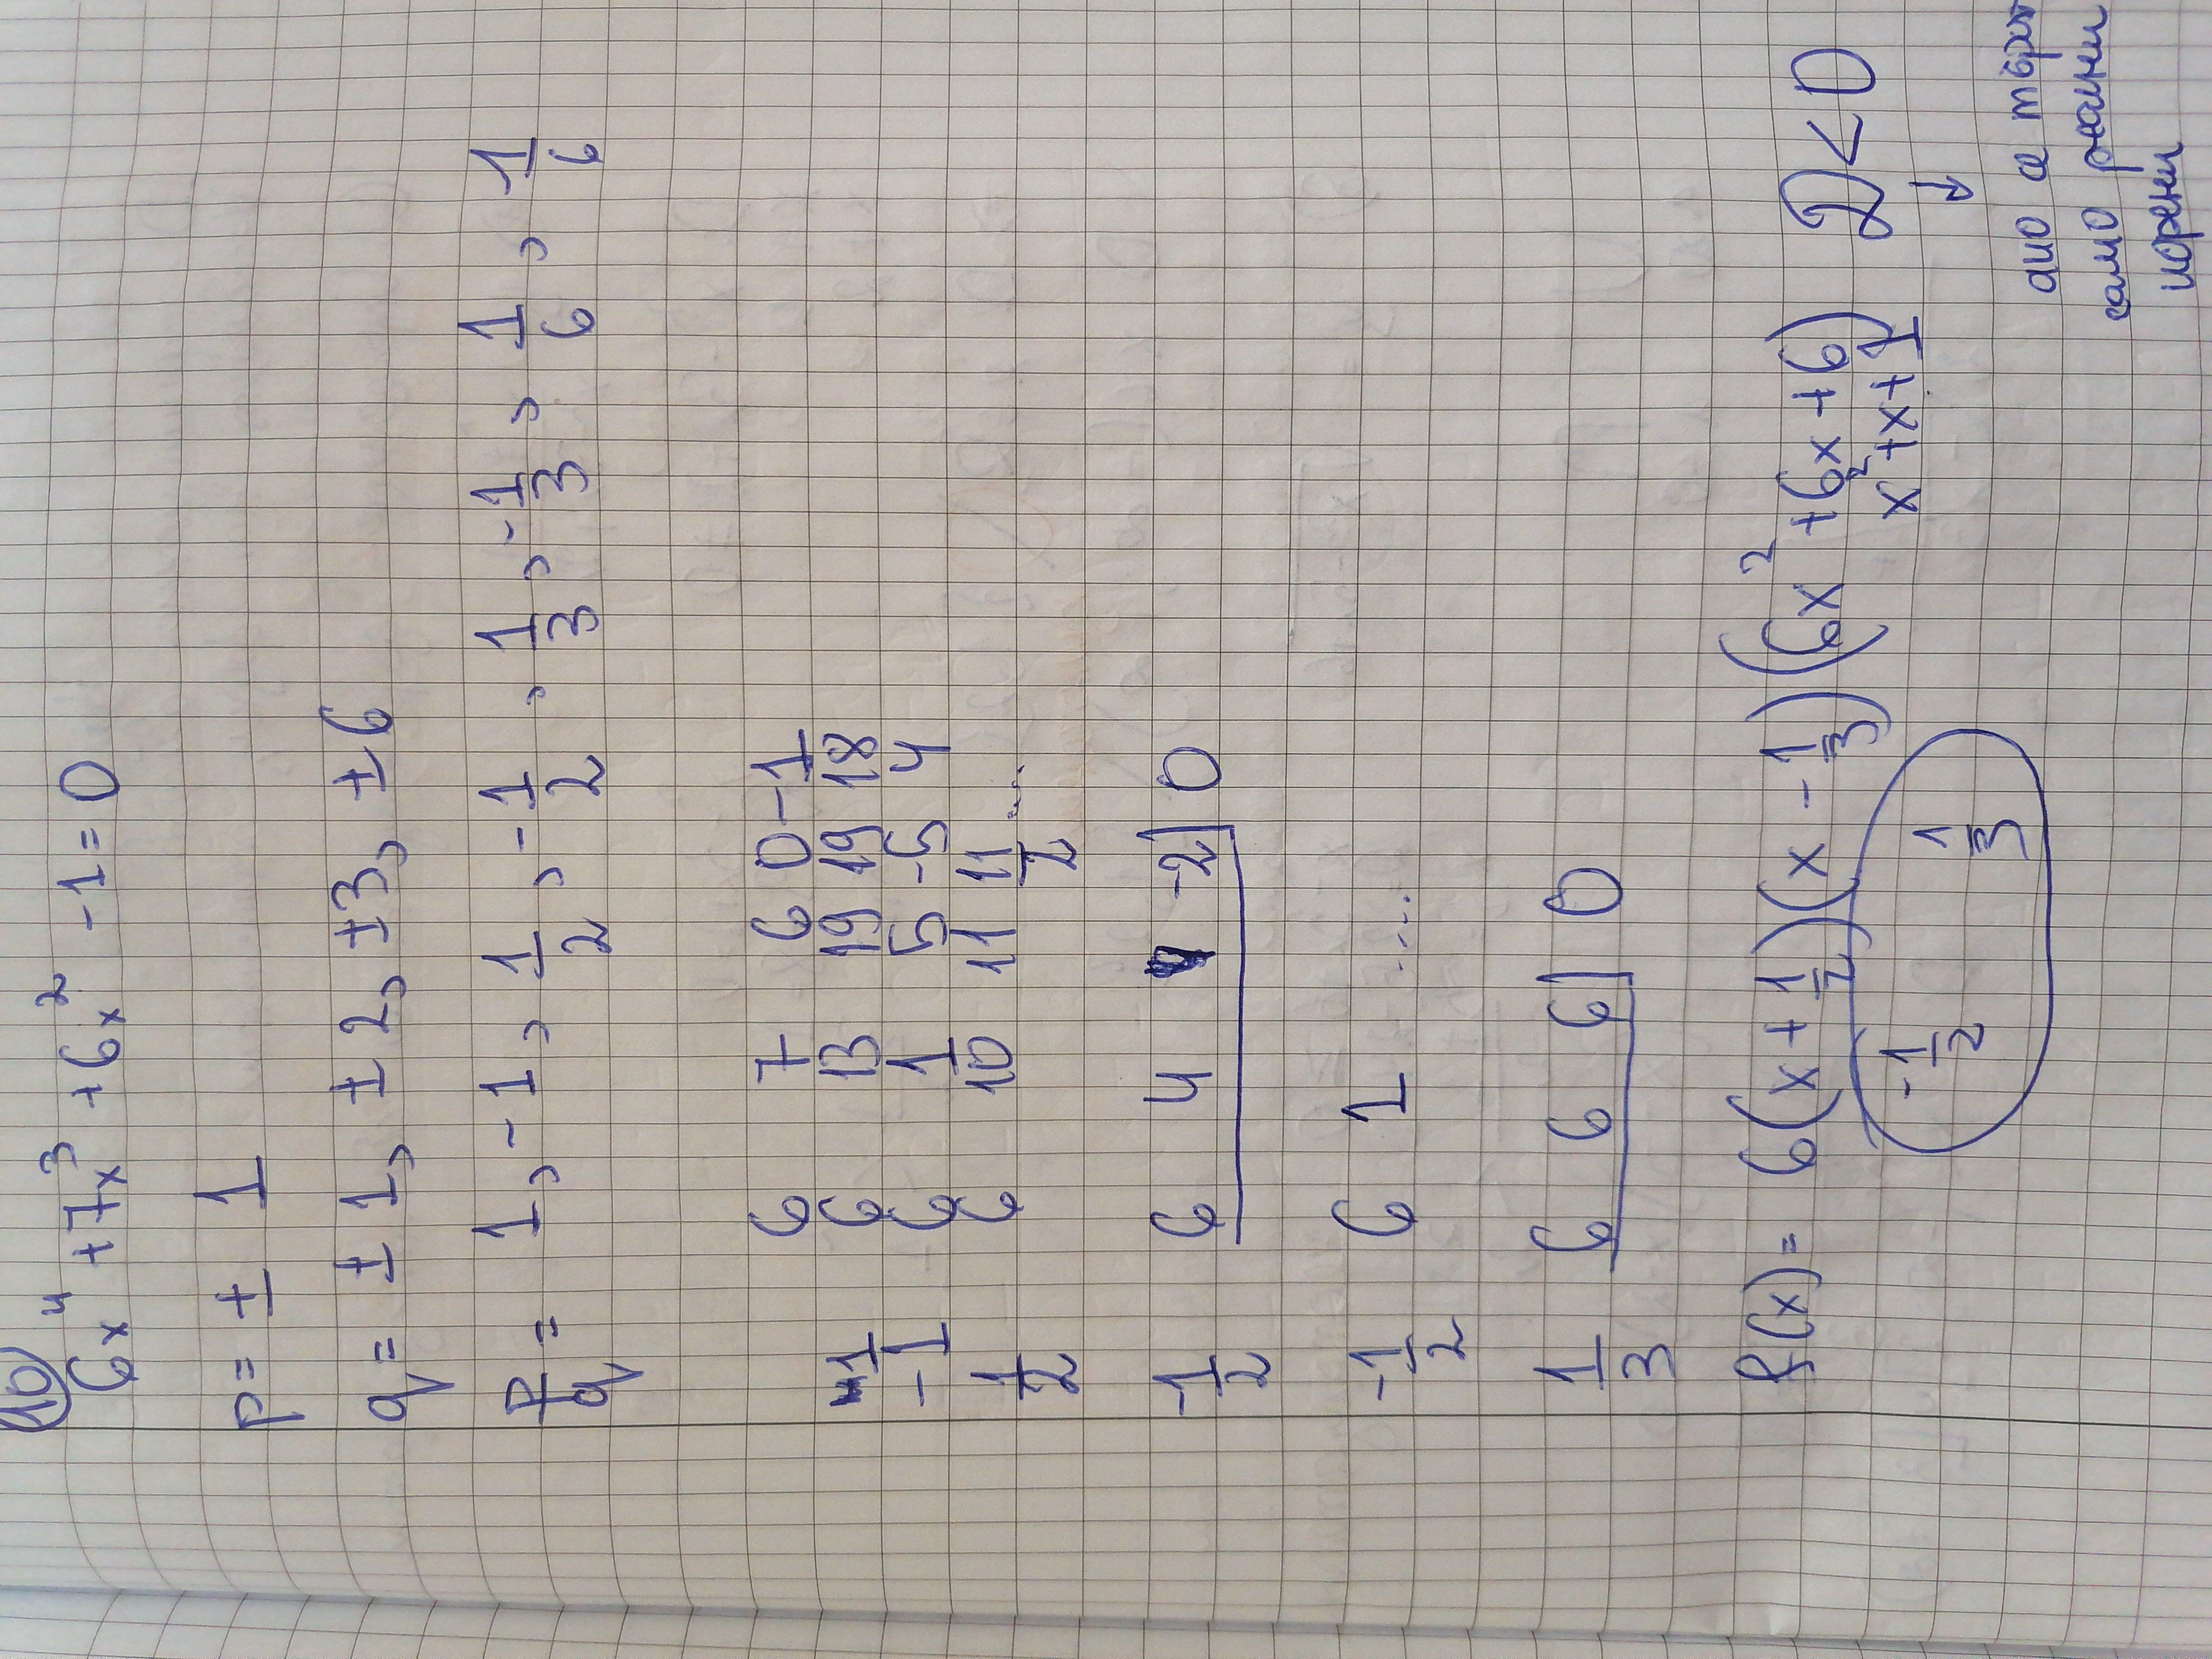 10
6x⁴ +7x³ +6x² -1=0
p= ± 1
q= ± 1, ± 2, ±3, ±6
p/q = 1, -1, 1/2, -1/2, 1/3, -1/3, 1/6, 1/6
6 7 6 0 -1
1 6 13 19 19 18
-1 6 1 5 -5 4
1/2 6 10 11 11/2 ...
-1/2 6 4 -2] 0
-1/2 6 1 ....
1/3 6 6 6] 0
f(x)= 6(x+1/2)(x-1/3)(6x²+6x+6) D<0
x²+x+1
-1/2 1/3
↓
ако се търсят
само реални
корени